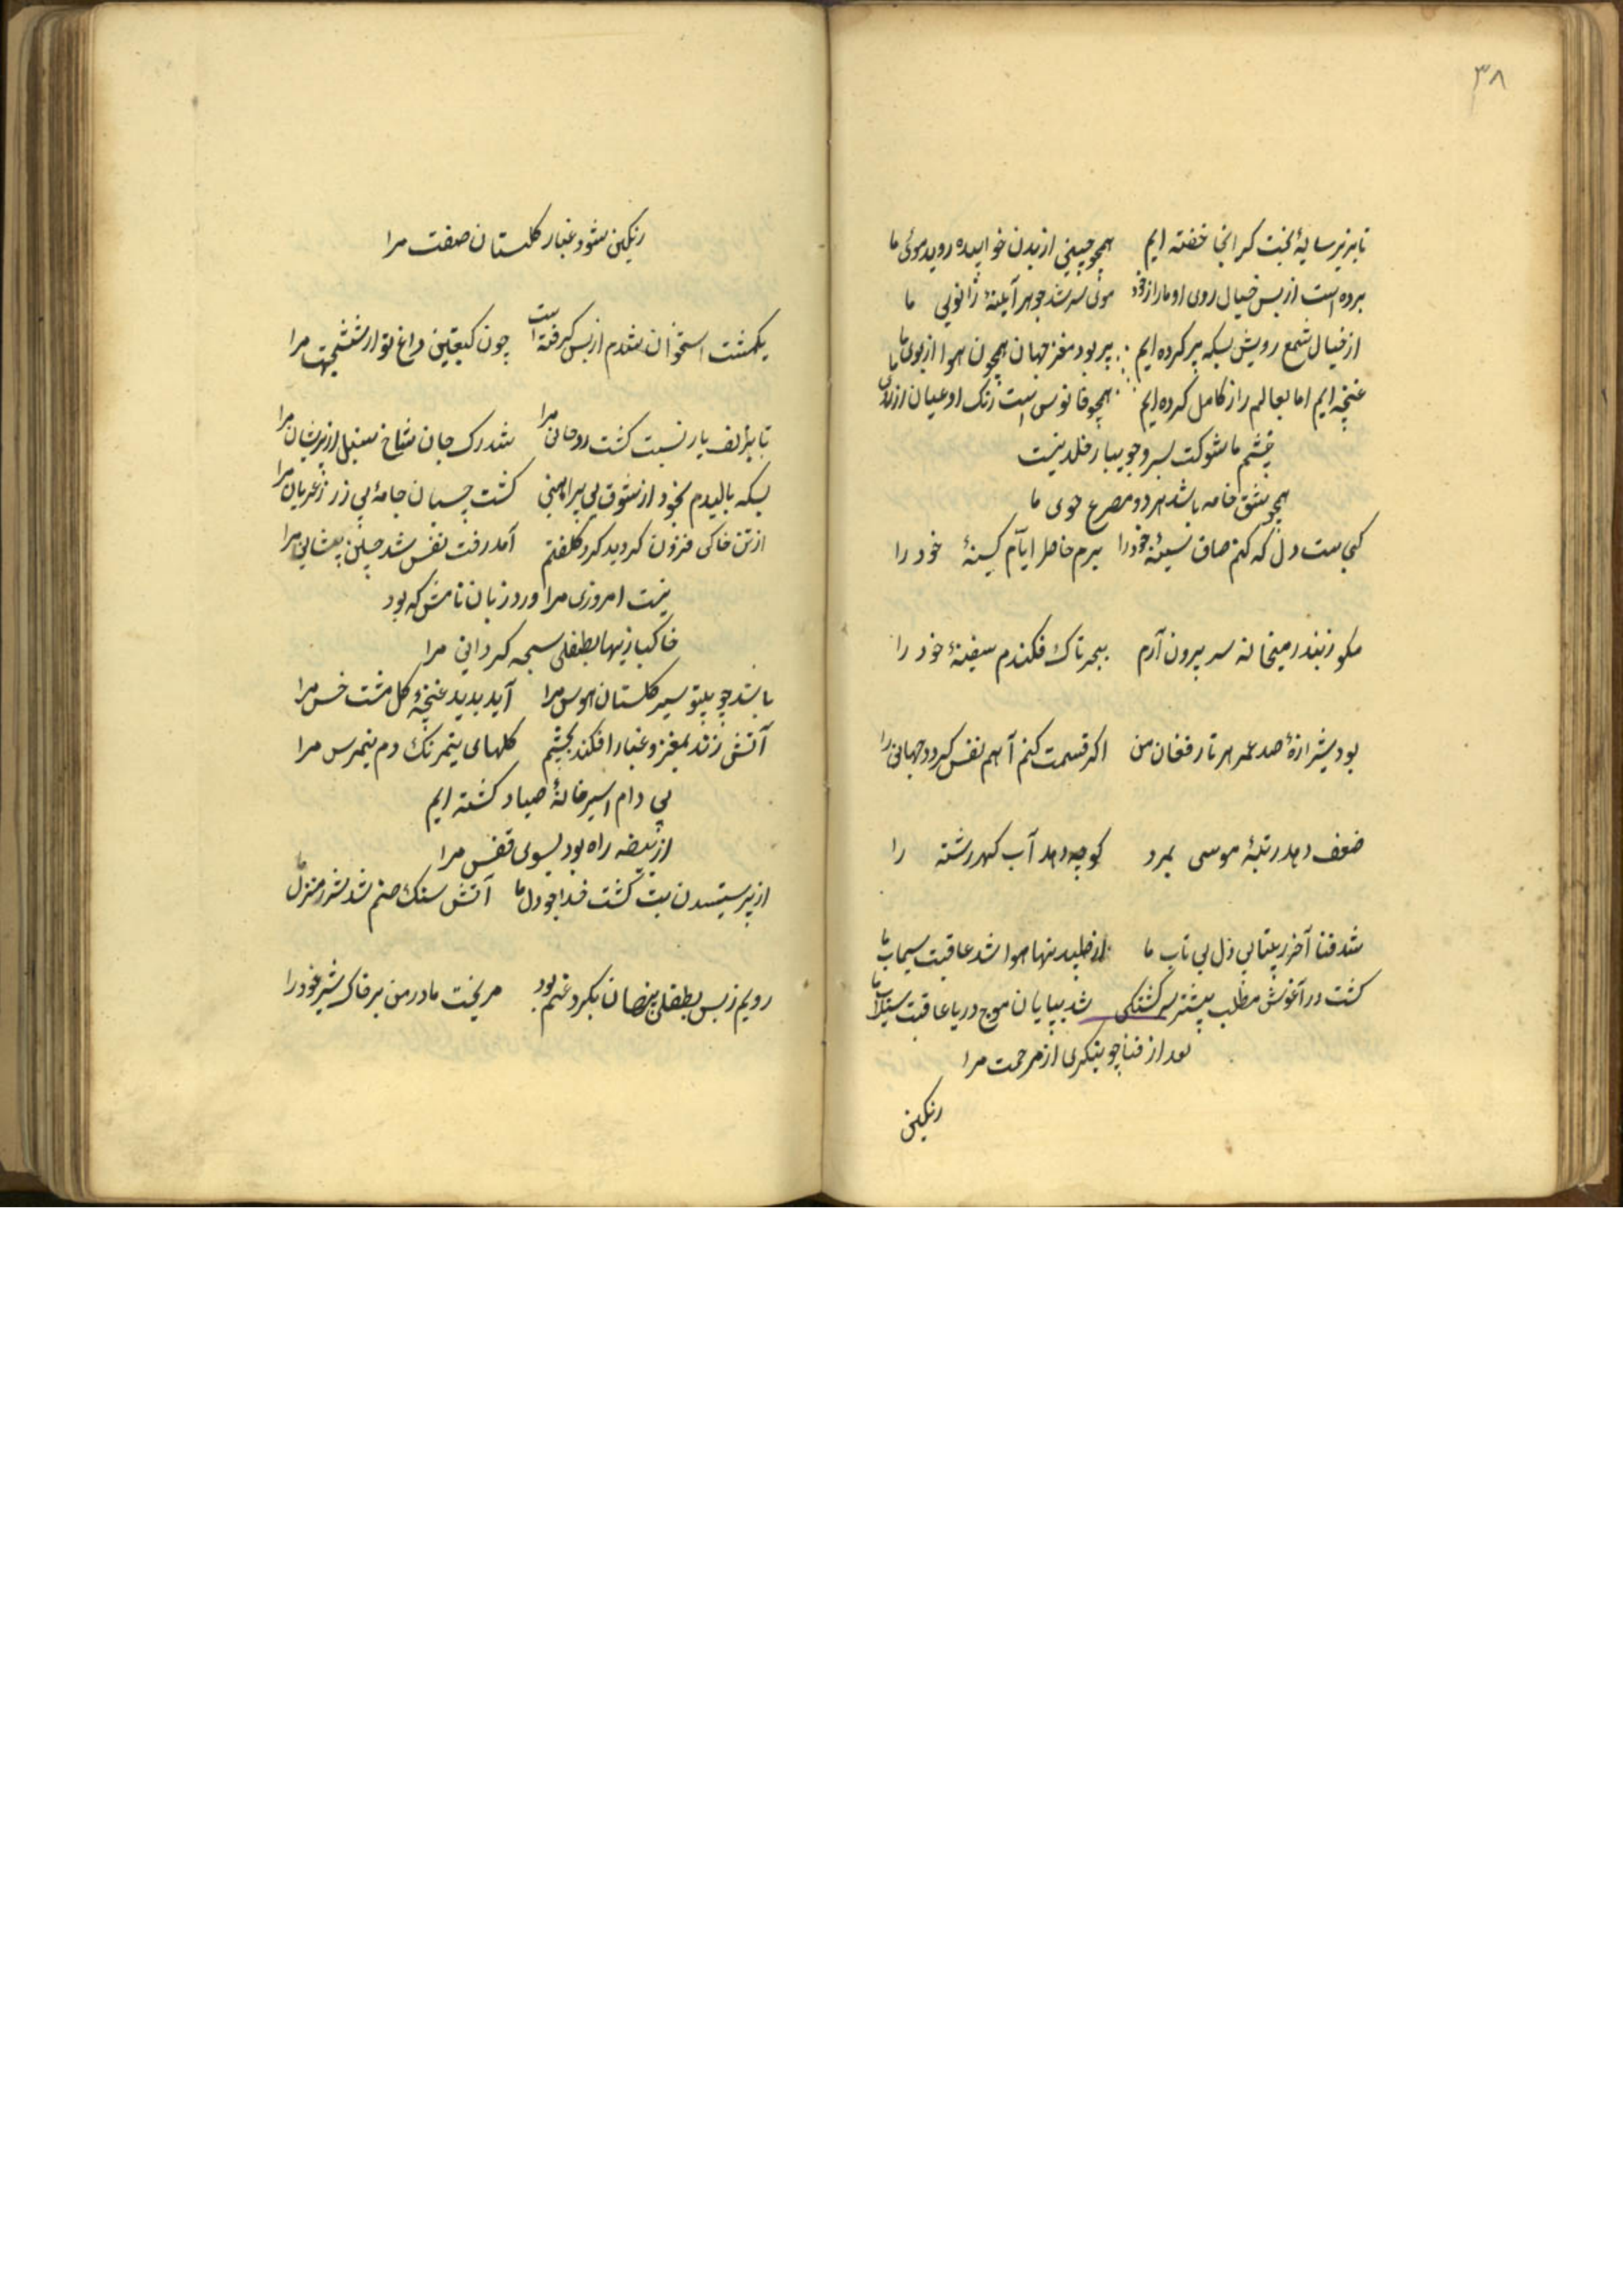 ۳۸
تا بزیر سایهٔ بخت کر انجا خفته ایم همچو چینی از بدن خوابیده روید موئی ما
برده است از بس خیال روی او ما را ز خود موئی سر شد جوهر آیینهٔ زانویی ما
از خیال شمع رویش بسکه پر کرده ایم پر بود مغز جهان همچون هوا از بوی ما
غنچه ایم اما بعالم راز کامل کرده ایم همچو فانوس است رنک او عیان از
چشم ما شوکت بسرو جویبار خلد نیست
همچو مشق خامه باشد هر دو مصرع جوی ما
کجاست دل که کنم صاف سینهٔ خود را برم خاطر ایام کینهٔ خود را
مکو ز بند میخانه سر برون آرم ببحر تاک فکندم سفینهٔ خود را
بود شیرازهٔ صد عمر هر تار فغان من اکر قسمت کنم آهم نفس کردد جهانی را
ضعف دهد رتبهٔ موسی بمرد کوچه دهد آب کهر رشته را
شد فنا آخر ز بیتابی دل بی تاب ما از طپیدنها هوا شد عاقبت سیماب ما
کشت در آغوش مطلب بیشتر سرکشتکی شد بپایان موج دریا عاقبت سیلاب ما
بعد از فنا چو بنکری از مرحمت مرا
رنکین
رنکین شود غبار کلستان صفت مرا
یکمشت استخوان شدم از بس کرفته است چون کعبتین داغ تو از ششجهت مرا
تا بزلف یار نسبت کشت روحانی مرا شد رک جان شاخ سنبل از پریشانی مرا
بسکه بالیدم بخود از شوق بی پیراهنی کشت چسبان جامهٔ بی زر ز عریانی مرا
از تن خاکی فزون کردید کرد کلفتم آمد رفت نفس شد چین پیشانی مرا
نیست امروزی مرا ورد زبان نامش که بود
خاکبازیها بطفلی سبحه کردانی مرا
باشد چو بیتو سیر کلستان هوس مرا آید بدید غنچهٔ کل مشت خس مرا
آتش زند بمغز و غبار افکند بچشم کلهای نیمرنک دم نیمرس مرا
بی دام اسیر خانهٔ صیاد کشته ایم
از بیضه راه بود بسوی قفس مرا
از پرستیدن بت کشت خداجو دل ما آتش سنک صنم شد شرر منزل ما
رویم ز بس بطفلی پنهان بکرد غم بود میریخت مادر من بر خاک شیر خود را